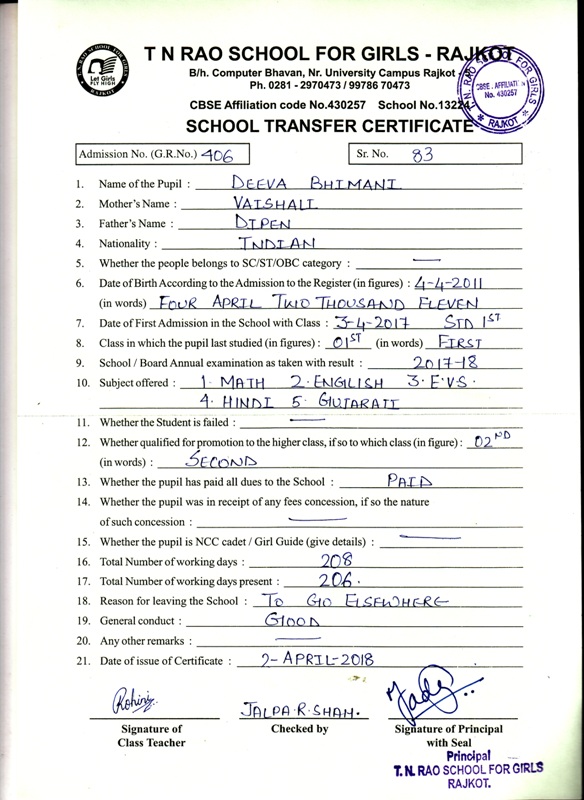 T. N. RAO SCHOOL FOR GIRLS
Let Girls
FLY HIGH
RAJKOT
T N RAO SCHOOL FOR GIRLS - RAJKOT
B/h. Computer Bhavan, Nr. University Campus Rajkot -
Ph. 0281 - 2970473 / 99786 70473
CBSE Affiliation code No.430257 School No.13224
T. N. RAO SCHOOL FOR GIRLS
CBSE. AFFILIATION
No. 430257
RAJKOT
SCHOOL TRANSFER CERTIFICATE
Admission No. (G.R.No.) 406 Sr. No. 83
1. Name of the Pupil : DEEVA BHIMANI
2. Mother's Name : VAISHALI
3. Father's Name : DIPEN
4. Nationality : INDIAN
5. Whether the people belongs to SC/ST/OBC category : —
6. Date of Birth According to the Admission to the Register (in figures) : 4-4-2011
(in words) FOUR APRIL TWO THOUSAND ELEVEN
7. Date of First Admission in the School with Class : 3-4-2017 STD 1ST
8. Class in which the pupil last studied (in figures) : 01ST (in words) FIRST
9. School / Board Annual examination as taken with result : 2017-18
10. Subject offered : 1. MATH 2. ENGLISH 3. E.V.S.
4. HINDI 5. GUJARATI
11. Whether the Student is failed : —
12. Whether qualified for promotion to the higher class, if so to which class (in figure) : 02ND
(in words) : SECOND
13. Whether the pupil has paid all dues to the School : PAID
14. Whether the pupil was in receipt of any fees concession, if so the nature
of such concession : —
15. Whether the pupil is NCC cadet / Girl Guide (give details) : —
16. Total Number of working days : 208
17. Total Number of working days present : 206.
18. Reason for leaving the School : TO GO ELSEWHERE
19. General conduct : GOOD
20. Any other remarks : —
21. Date of issue of Certificate : 2-APRIL-2018
JALPA.R.SHAH.
Signature of Checked by Signature of Principal
Class Teacher with Seal
Principal
T. N. RAO SCHOOL FOR GIRLS
RAJKOT.